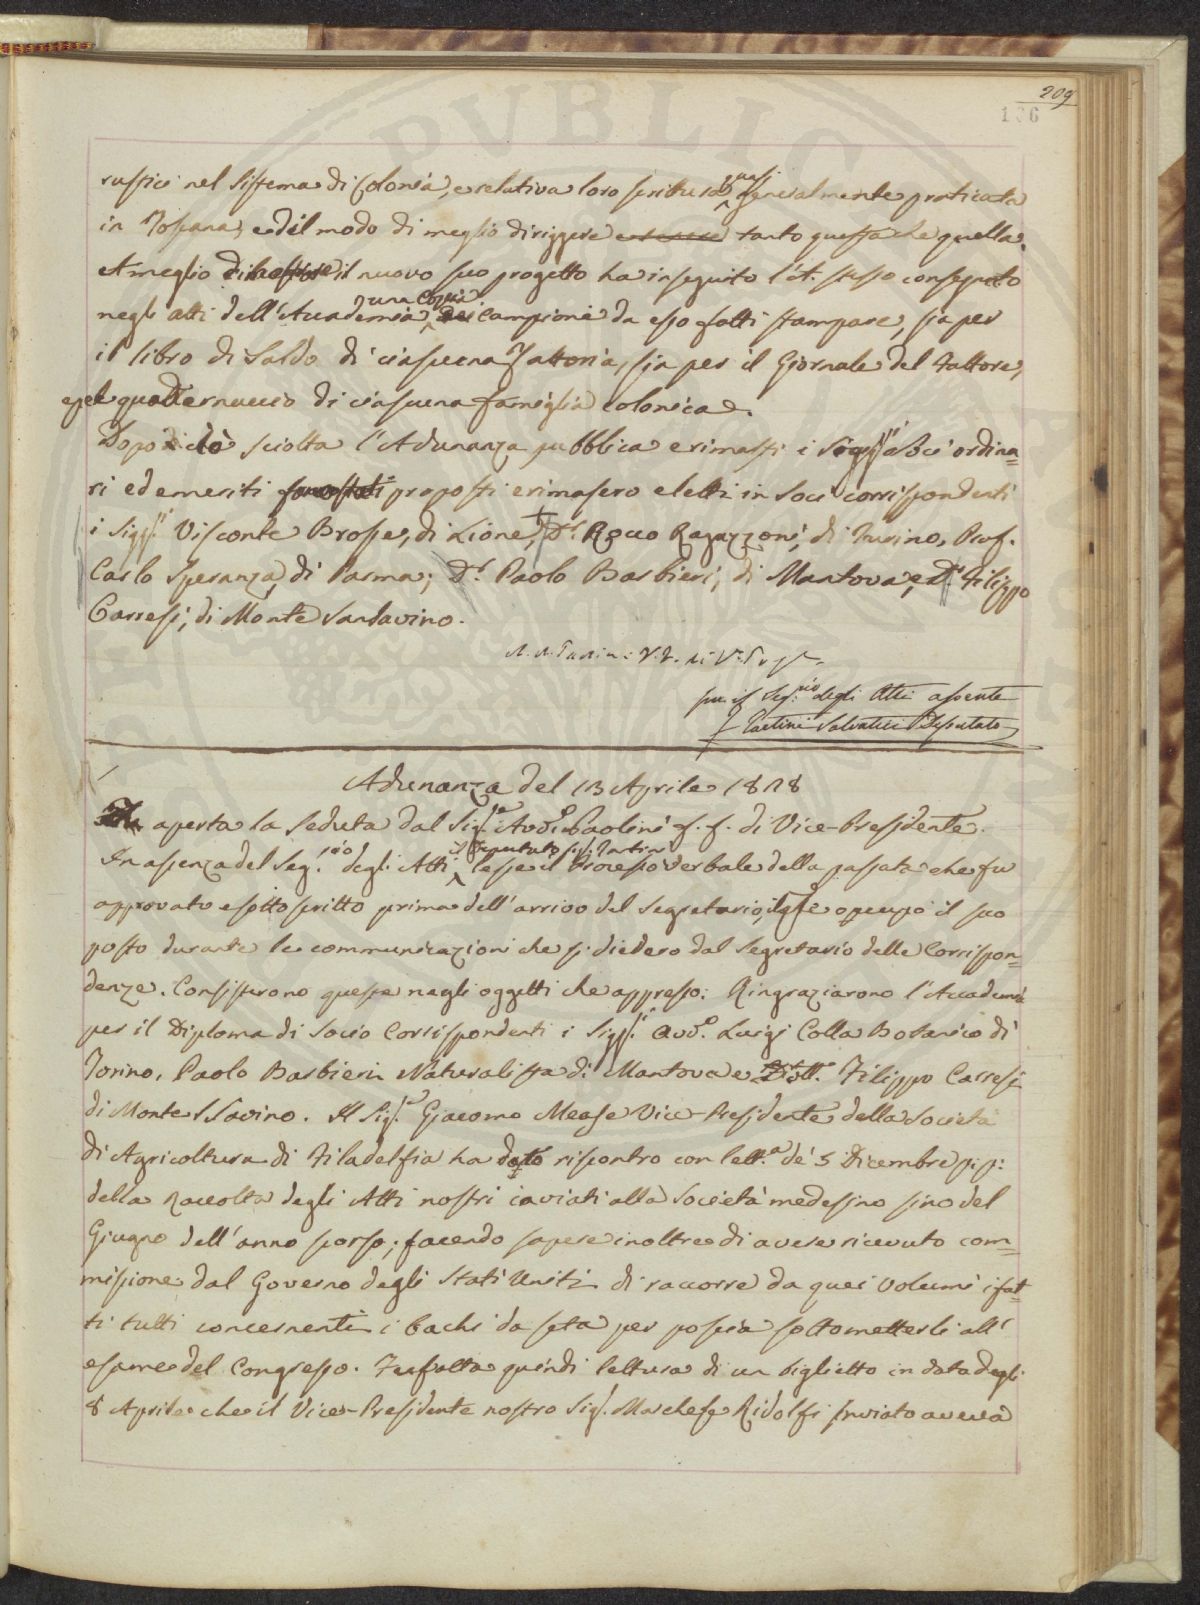 209
166
rustici nel sistema di Colonia, e relativa loro scrittura quasi generalmente praticata
in Toscana, e del modo di meglio diriggere tanto questa che quella.
A meglio il nuovo suo progetto ha in seguito l'A. stesso consegnato
negli atti dell'Accademia una Copia dei Campioni da esso fatti stampare, sia per
il libro di Saldo di ciascuna Fattoria, sia per il Giornale del Fattore,
e pel quadernuccio di ciascuna famiglia colonica.
Dopo di ciò sciolta l'Adunanza pubblica e rimasti i Sigg.ri Soci ordina=
ri ed emeriti furono proposti e rimasero eletti in Soci corrispondenti
i Sigg.ri Visconte Brosse, di Lione, D.r Rocco Ragazzoni, di Turino, Prof.
Carlo Speranza, di Parma; D.r Paolo Barbieri, di Mantova, e D.r Filippo
Carresi, di Monte Sansavino.
per il Seg.rio degli Atti assente
F Tartini Salvatici Deputato
Adunanza del 13 Aprile 1828
aperta la Seduta dal Sig.e Aud.e Paolini f. f. di Vice-Presidente.
In assenza del Seg.rio degli Atti il Deputato Sig. Tartini lesse il Processo Verbale della passata che fu
approvato e sottoscritto prima dell'arrivo del Segretario, il q.le occupò il suo
posto durante le communicazioni che si diedero dal Segretario delle Corrispon=
denze. Consisterono queste negli oggetti che appresso: Ringraziarono l'Accademia
per il Diploma di Socio Corrispondenti i Sigg.ri Avv.o Luigi Colla Botanico di
Torino, Paolo Barbieri Naturalista di Mantova e Dott. Filippo Carresi
di Monte S. Savino. Il Sig.r Giacomo Mease Vice-Presidente della Società
di Agricoltura di Filadelfia ha dato riscontro con lett.a de' 5 Dicembre p:p:
della Raccolta degli Atti nostri inviati alla Società medesima sino del
Giugno dell'anno scorso; facendo sapere inoltre di avere ricevuto com=
missione dal Governo degli Stati Uniti di raccorre da quei Volumi i fat=
ti tutti concernenti i bachi da seta per poscia sottometterli all'
esame del Congresso. Fu fatta quindi lettura di un biglietto in data degli
8 Aprile che il Vice-Presidente nostro Sig. Marchese Ridolfi inviato aveva